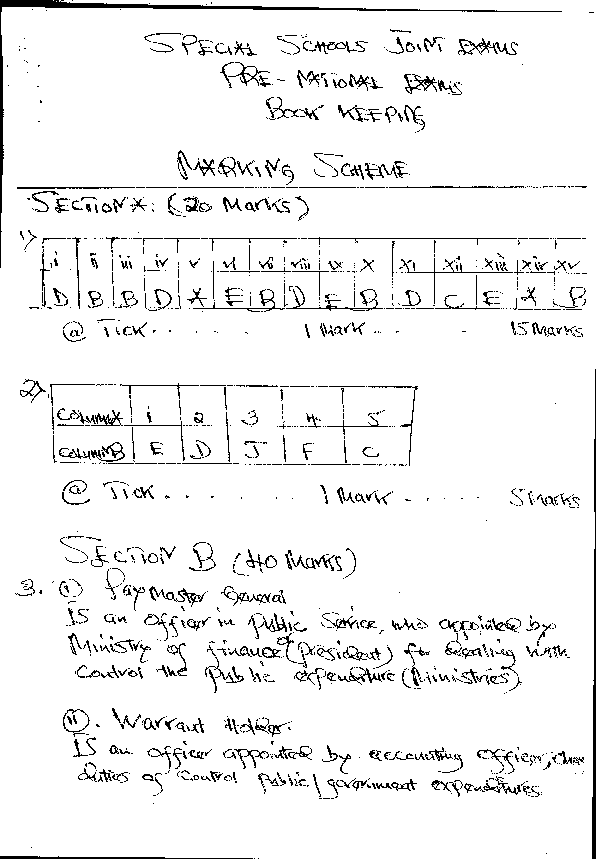 SPECIAL SCHOOLS JOINT EXAMS
PRE-NATIONAL EXAMS
BOOK KEEPING
MARKING SCHEME
SECTION A: (20 Marks)
1)
i ii iii iv v vi vii viii ix x xi xii xiii xiv xv
D B B D A E B D E B D C E A B
@ Tick...... 1 Mark... . 15 Marks
2)
Column A 1 2 3 4 5
Column B E D J F C
@ Tick....... 1 Mark...... 5 Marks
SECTION B (40 Marks)
3. (i) Pay Master General
Is an Officer in Public Service, who appointed by
Ministry of finance or (president) for dealing with
Control the Public expenditure (Ministries).
(ii). Warrant Holder.
Is an officer appointed by accounting officer,
duties of Control Public/government expenditures